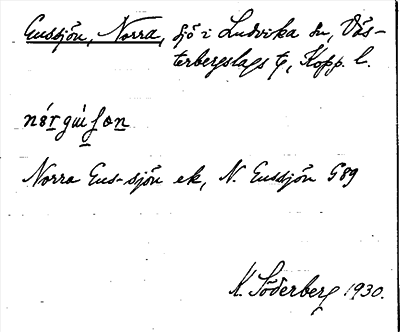 Gussjön, Norra, sjö i Ludvika sn, Väs-
terbergslags tg, Kopp. l.
Norra Gus-sjön ek, N. Gussjön G89
K. Söderberg 1930.